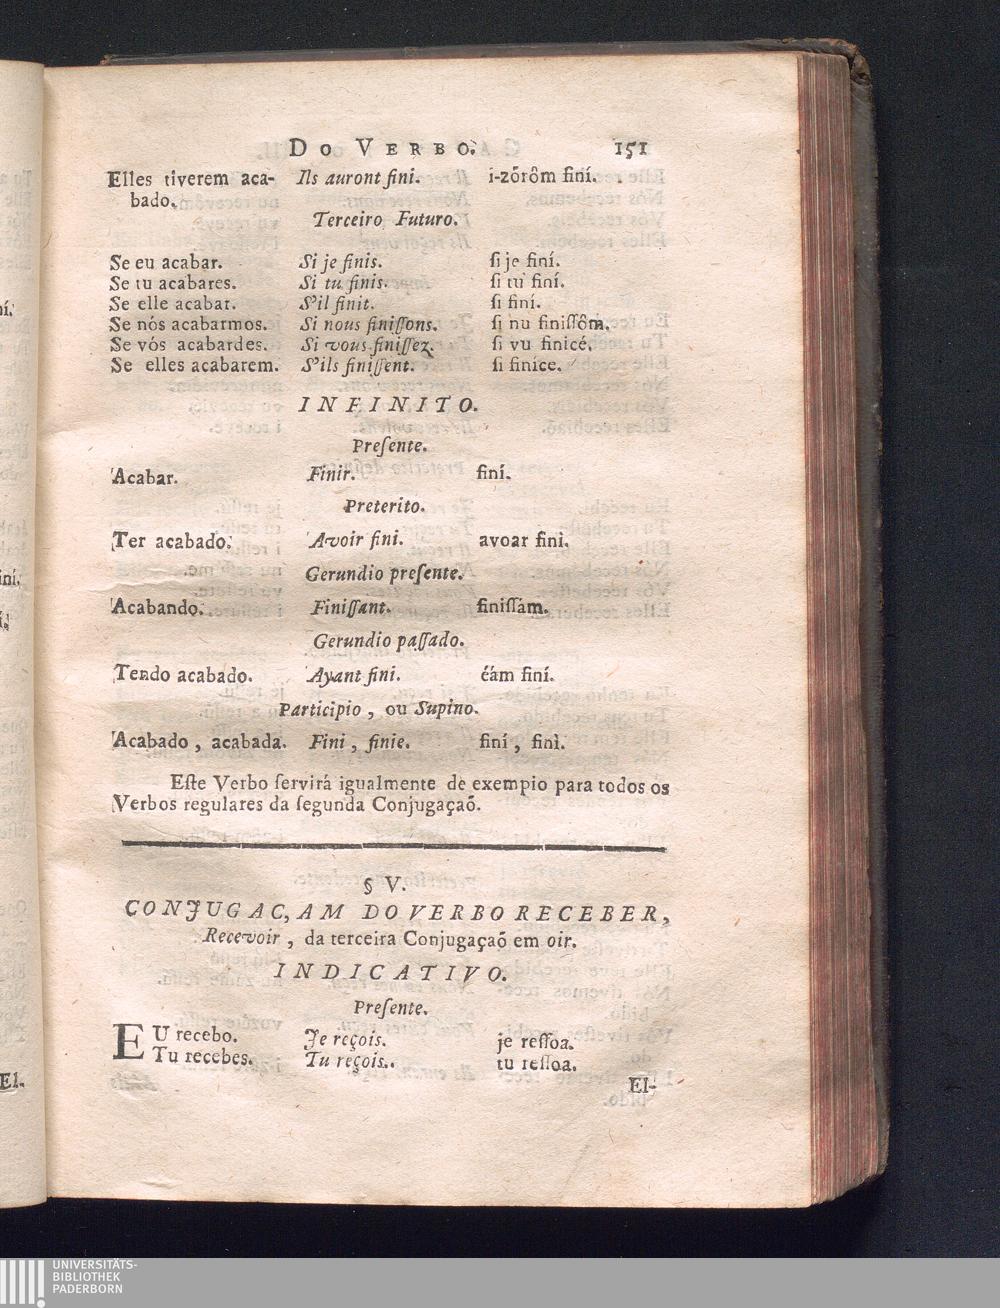 DO VERBO. 151
Elles tiverem aca- Ils auront fini. i-zõrôm finí.
bado.
Terceiro Futuro.
Se eu acabar. Si je finis. ſi je finí.
Se tu acabares. Si tu finis. ſi tu finí.
Se elle acabar. S'il finit. ſi finí.
Se nós acabarmos. Si nous finiſſons. ſi nu finiſſôm.
Se vós acabardes. Si vous finiſſez. ſi vu finicé.
Se elles acabarem. S'ils finiſſent. ſi finíce.
INFINITO.
Preſente.
Acabar. Finir. finí.
Preterito.
Ter acabado. Avoir fini. avoar finì.
Gerundio preſente.
Acabando. Finiſſant. finiſſám.
Gerundio paſſado.
Tendo acabado. Ayant fini. éám finí.
Participio, ou Supino.
Acabado, acabada. Fini, finie. finí, finì.
Eſte Verbo ſervirá igualmente de exempio para todos os
Verbos regulares da ſegunda Conjugaçaõ.
§ V.
CONJUGAC,AM DO VERBO RECEBER,
Recevoir, da terceira Conjugaçaõ em oir.
INDICATIVO.
Preſente.
EU recebo. Je reçois. je reſſoa.
Tu recebes. Tu reçois. tu reſſoa.
El-
ní.
iní.
í.
El-
UNIVERSITÄTS-
BIBLIOTHEK
PADERBORN